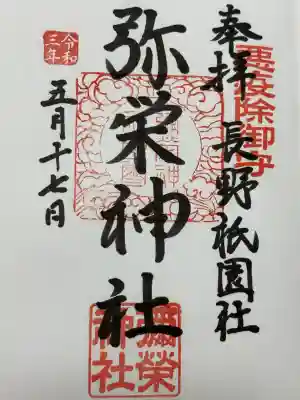 奉拝
長野祇園社
悪疫除御守
弥栄神社
彌榮神社
令和三年
五月十七日